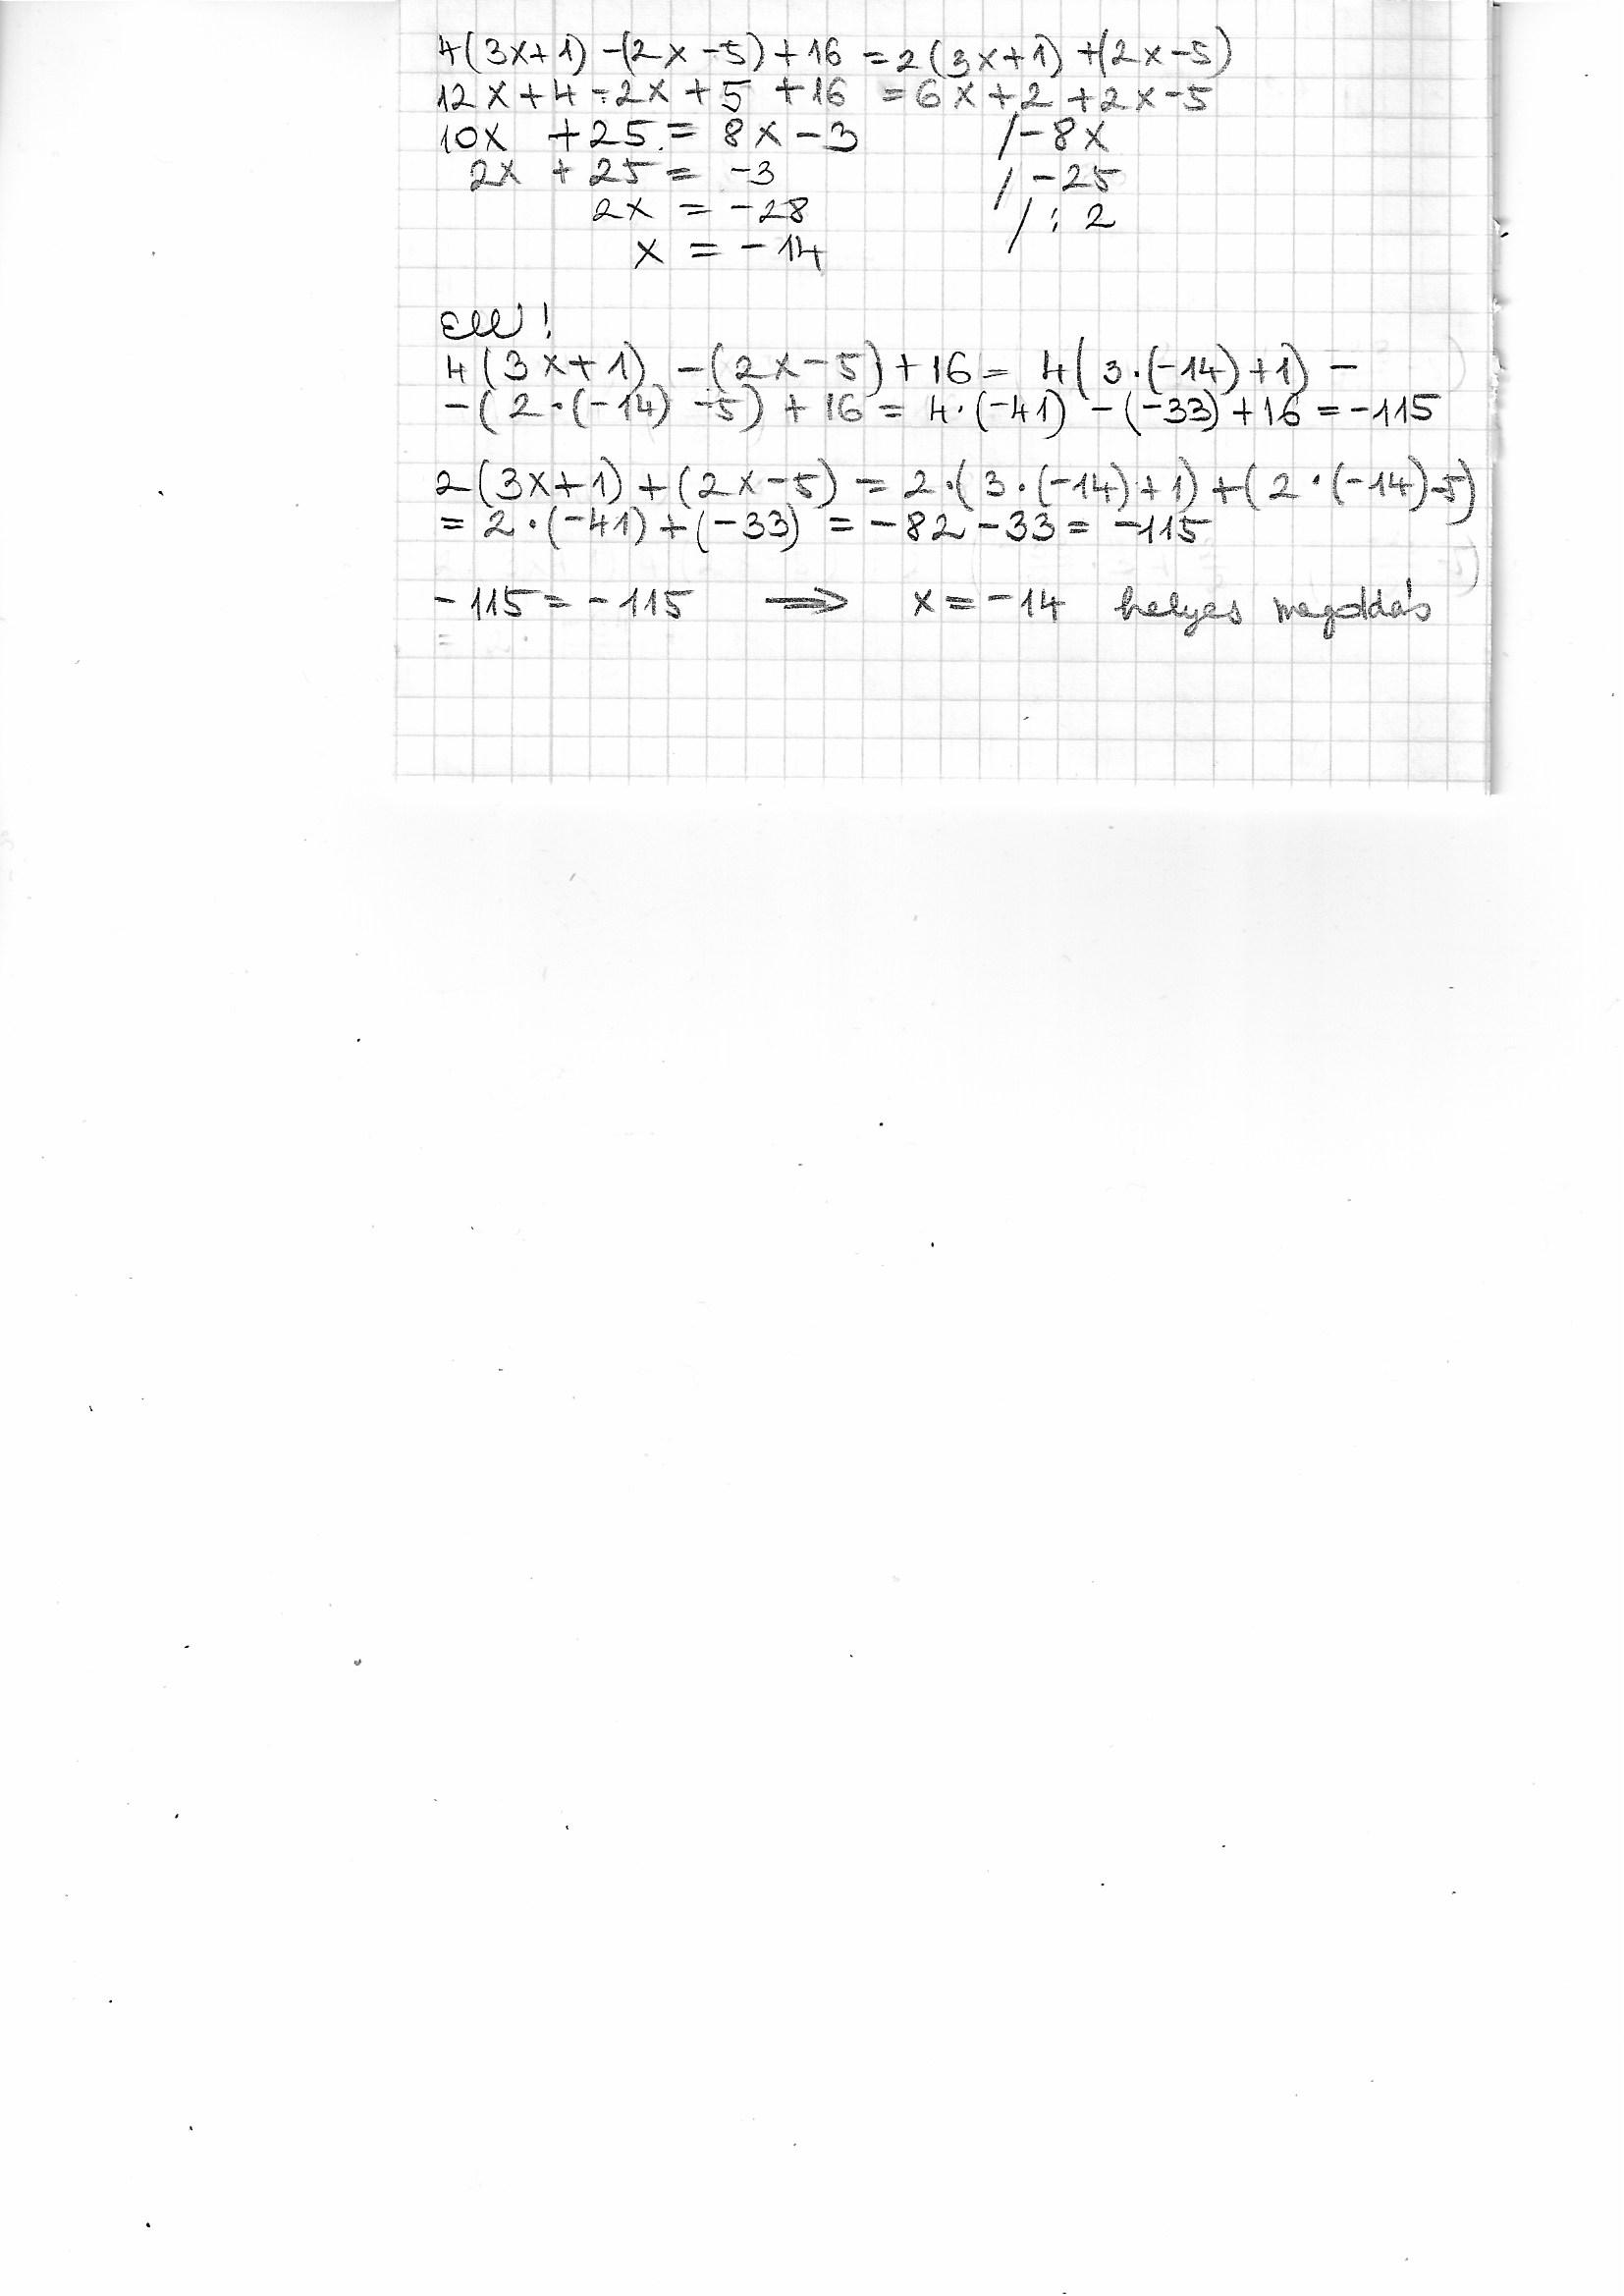 4(3x+1) -(2x-5)+16 = 2(3x+1)+(2x-5)
12x+4-2x+5 +16 = 6x+2+2x-5
10x +25 = 8x-3 /-8x
2x +25 = -3 /-25
2x = -28 / : 2
x = -14
Ell!
4(3x+1) -(2x-5)+16 = 4(3·(-14)+1) -
-(2·(-14) -5) + 16 = 4·(-41) -(-33)+16 = -115
2(3x+1)+(2x-5) = 2·(3·(-14)+1)+(2·(-14)-5)
= 2·(-41)+(-33) = -82-33 = -115
-115 = -115 ⟹ x = -14 helyes megoldás